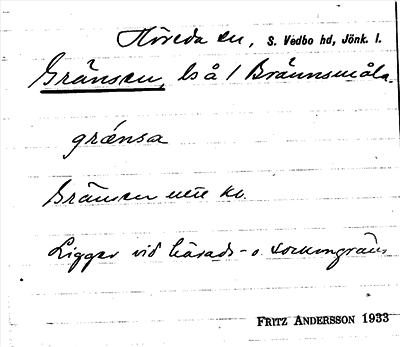 Höreda sn, S. Vedbo hd, Jönk. l.
Gränsen, ls å 1 Brännsmåla.
grǽnsa
Gränsen
Ligger vid härads- o. sockengräns
FRITZ ANDERSSON 1933